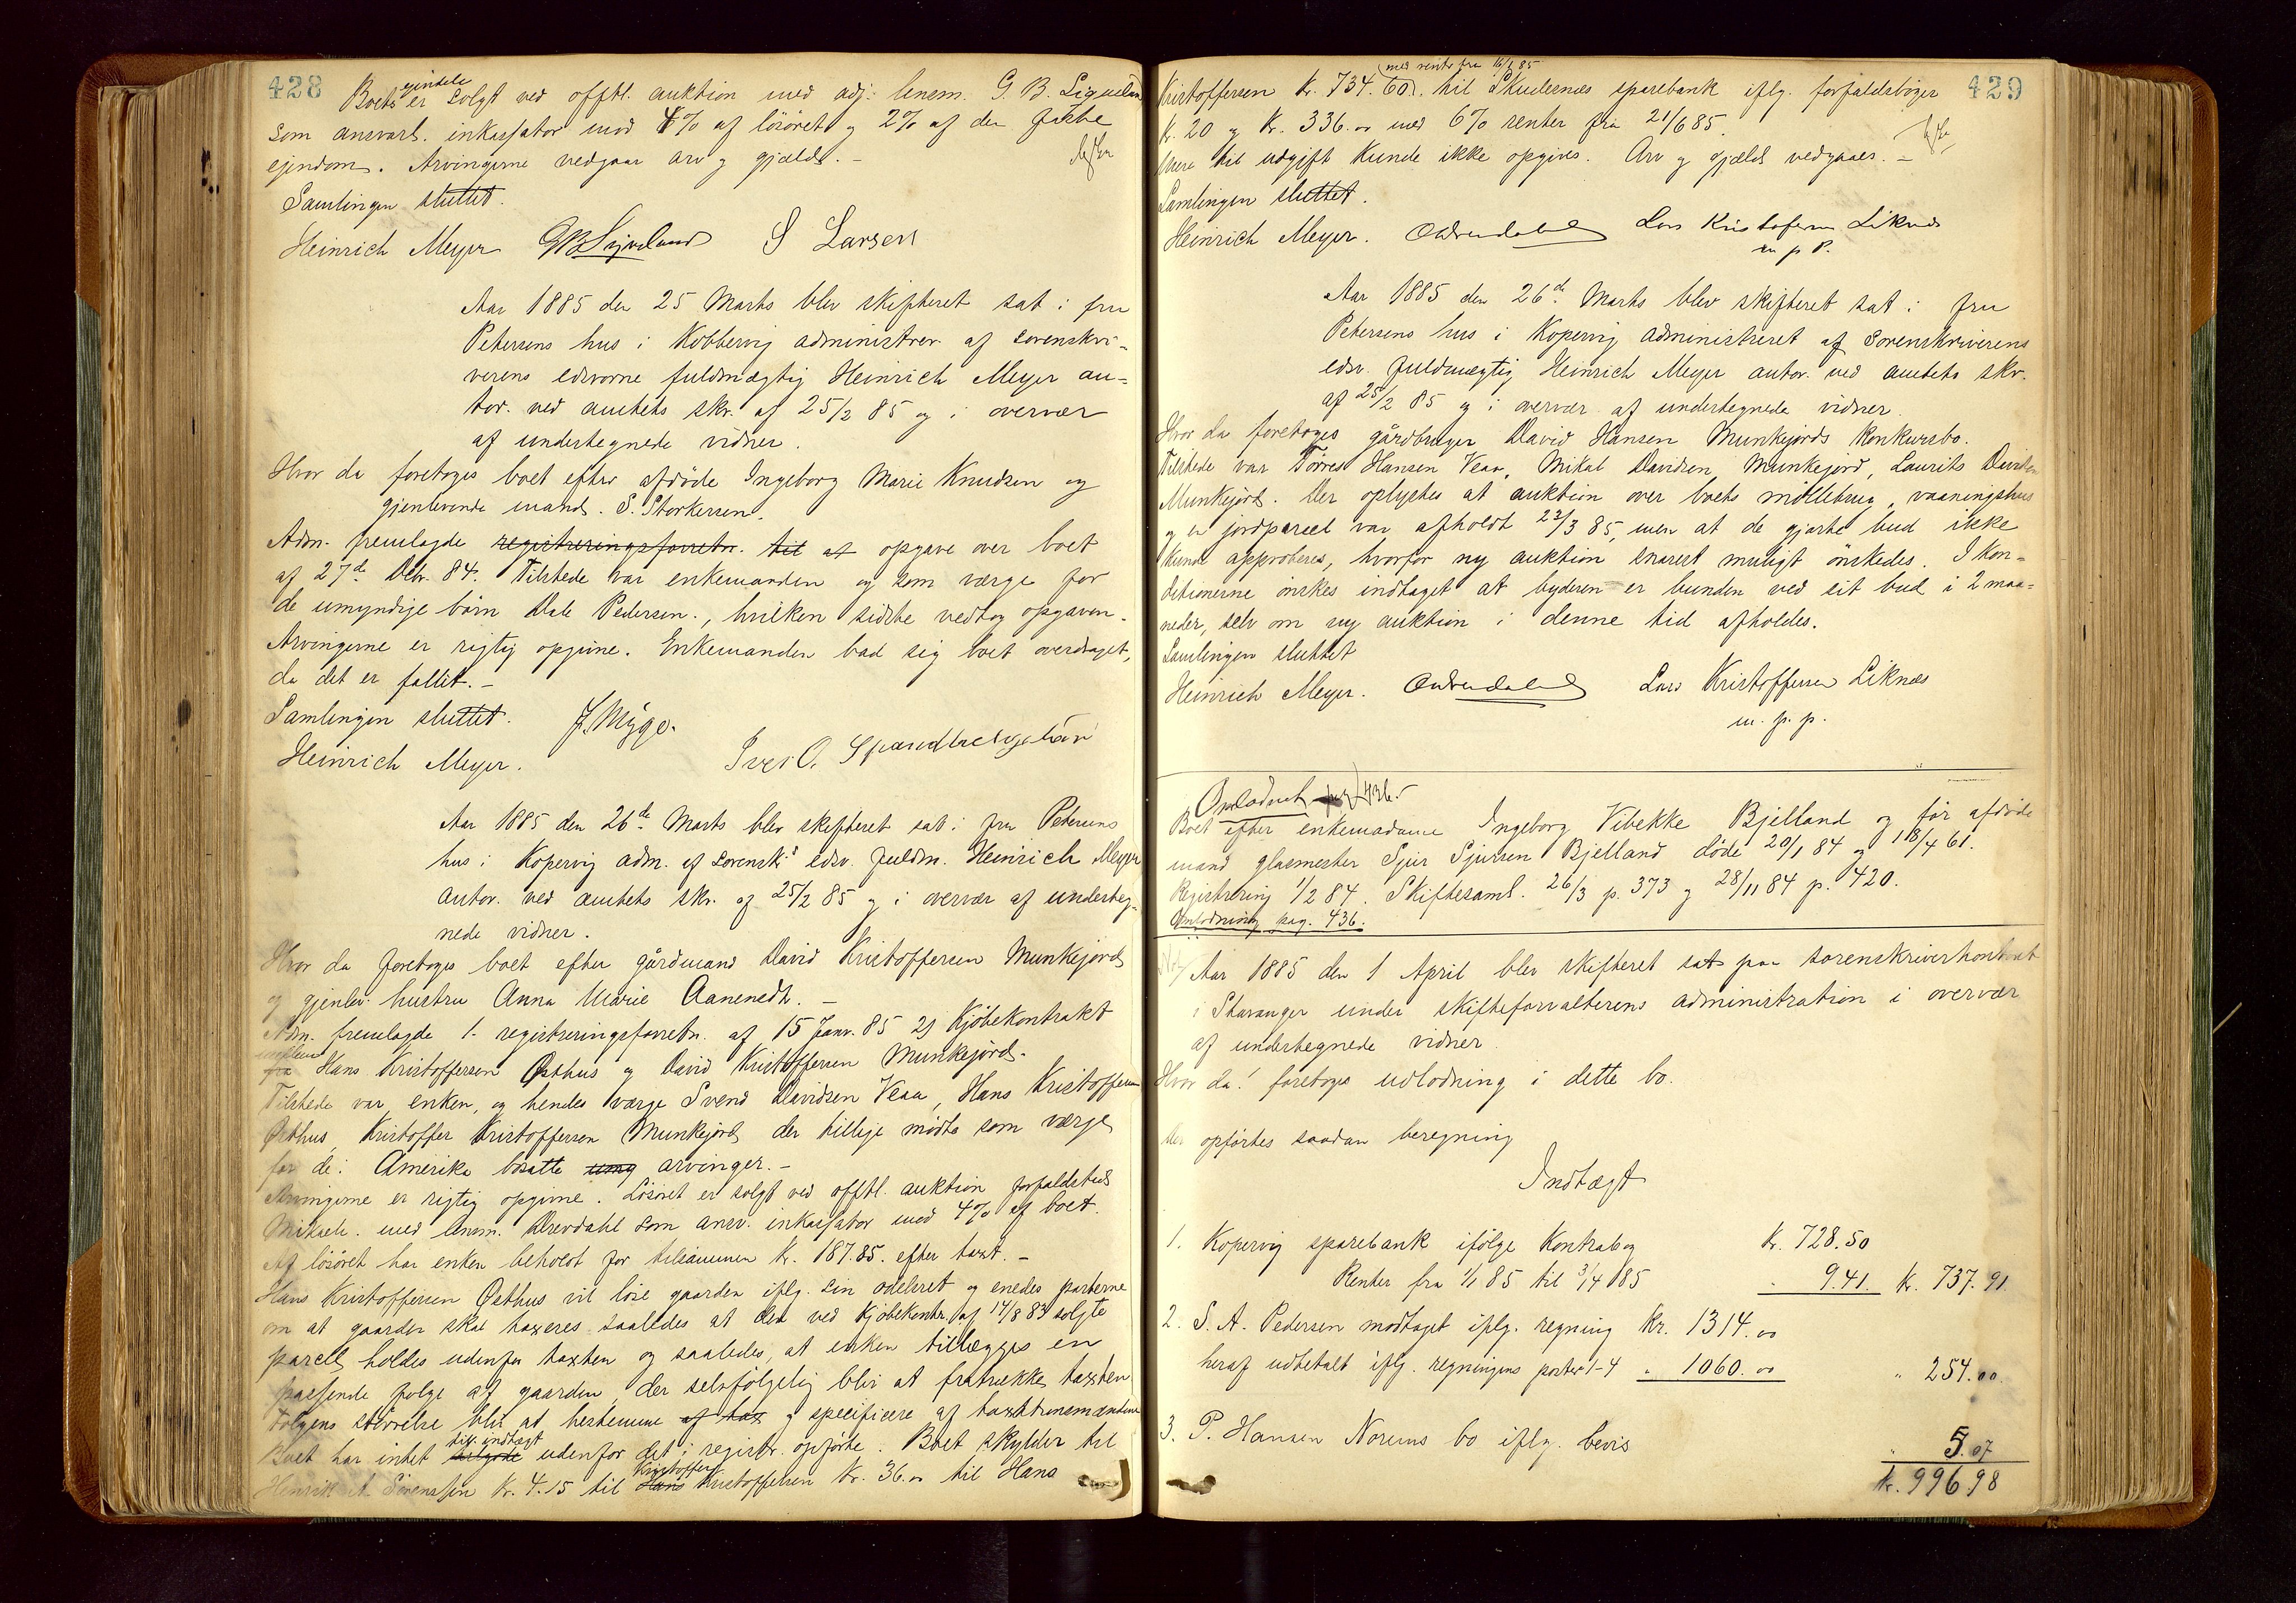 428
Boets eiendele er solgt ved offtl. auktion med adj. lensm. G. B.
som ansvarl. inkassator mod 4% af lösöret og 2% af den faste
ejendom. Arvingerne vedgaar arv og gjæld. -
Samlingen sluttet.
Heinrich Meyer S Larsen
Aar 1885 den 25 Marts blev skifteret sat i fru
Petersens hus i Kobbervig administrer. af sorenskri-
verens edsvorne fuldmægtig Heinrich Meyer au-
tor. ved amtets skr. af 25/2 85 og i overvær
af undertegnede vidner.
Hvor da foretoges boet efter afdöde Ingeborg Marie Knudsen og
gjenlevende mand. S. Storkersen.
Adm. fremlagde registreringsforretn. til af opgave over boet
af 27de Dcbr. 84. Tilstede var enkemanden og som værge for
de umyndige börn Dale Pedersen., hvilken sidste vedtog opgaven.
Arvingerne er rigtig opgivne. Enkemanden bad sig boet overdraget,
da det er fallit. -
Samlingen sluttet. J. Myge.
Heinrich Meyer. Iver O.
Aar 1885 den 26de Marts blev skifteret sat i fru Petersens
hus i Kopervig adm. af sorensk.s edsv. fuldm. Heinrich Meyer
autor. ved amtets skr. af 25/2 85 og i overvær af underteg-
nede vidner.
Hvor da foretoges boet efter gårdmand David Kristoffersen Munkejord
og gjenlev. hustru Anna Marie Aanensdt. -
Adm. fremlagde 1. registreringsforretn. af 15 Janr. 85 2) Kjöbekontrakt
mellem fra Hans Kristoffersen Østhus og David Kristoffersen Munkejord.
Tilstede var enken, og hendes værge Svend Davidsen Veaa, Hans Kristoffersen
Østhus, Kristoffer Kristoffersen Munkejord der tillige mödte som værge
for de i Amerika bosatte umy arvinger. -
Arvingerne er rigtig opgivne. Lösöret er solgt ved offtl. auktion forfaldstid
Mikaeli. med lensm. Drevdahl som ansv. inkassator mod 4% af boet.
Af lösöret har enken beholdt for tilsammen kr. 187.85. efter taxt. -
Hans Kristoffersen Østhus vil löse gaarden iflg. sin odelsret og enedes parterne
om at gaarden skal taxeres saaledes at den ved kjöbekontr. af 14/8 83 solgte
parcel holdes udenfor taxten og saaledes, at enken tillægges en
passende folge af gaarden, der selvfölgelig blir at fratrække taxten
Folgens störrelse blir at bestemme af tax og specificere af taxtmændene
Boet har intet till. indtægt udenfor det i registr. opförte. Boet skylder til
Henrik A. Sörenssen kr. 4.15 til Hans Kristoffer Kristoffersen kr. 36.00 til Hans
429
Kristoffersen kr. 734.60 (med rente fra 16/ 85). til Skudesnes sparebank iflg. forfaldsböger
kr. 20 og kr. 336.00 med 6% renter fra 21/6 85.
Mere til udgift kunde ikke opgives. Arv og gjæld vedgaaes. -
Samlingen sluttet.
Heinrich Meyer. Lars Kristofersen Liknes
m p P.
Aar 1885 den 26de Marts blev skifteret sat i fru
Petersens hus i Kopervig administreret af sorenskriverens
edsv. fuldmægtig Heinrich Meyer autor. ved amtets skr.
af 25/2 85 og i overvær af undertegnede vidner.
Hvor da foretoges gårdbruger David Hansen Munkejords konkursbo.
Tilstede var Törres Hansen Veaa, Mikal Davidsen Munkejord, Laurits Davidsen
Munkejord. Der oplystes at auktion over boets möllebrug, vaaningshus
og en jordparcel var afholdt 23/3 85, men at de gjorte bud ikke
kunde approberes, hvorfor ny auktion snarest muligt önskedes. I kon-
ditionerne önskes indtaget at byderen er bunden ved sit bud i 2 maa-
neder, selv om ny auktion i denne tid afholdes.
Samlingen sluttet
Heinrich Meyer. Lars Kristoffersen Liknæs
m. p. p.
Omlodnet pag 436.
Boet efter enkemadame Ingeborg Vibekke Bjelland og för afdöde
mand glasmester Sjur Sjursen Bjelland döde 20/1 84 og 18/4 61.
Registrering 1/2 84. Skiftesaml. 26/3 p. 373 og 28/11 84 p. 420.
Omlodning pag. 436.
Aar 1885 den 1 April blev skifteret sat paa sorenskriverkontoret
i Stavanger under skifteforvalterens administration i overvær
af undertegnede vidner.
Hvor da! foretoges udlodning i dette bo.
Der opförtes saadan beregning
Indtægt
1. Kopervig sparebank ifölge Kontrabog kr. 728.50
Renter fra 1/1 85 til 3/4 85 " 9.41. kr. 737.91.
2. S. A. Pedersen modtaget iflg. regning kr. 1314.00
heraf udbetalt iflg. regningens poster 1-4 " 1060.00 " 254.00.
3. P. Hansen Norems bo iflg. bevis " 5.07
kr. 996 98